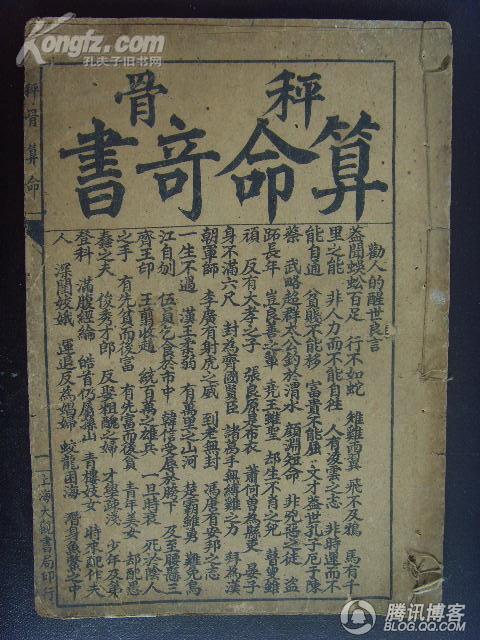 Kongfz.com
孔夫子旧书网
秤骨
算命奇書
勸人的醒世良言
蓋聞蜈蚣百足 行不如蛇 雉雞両翼 飛不及鴉 馬有千
里之能 非人力而不能自往 人有凌雲之志 非時運而不
能自通 貧賤不能移 富貴不能屈 文才蓋世孔子厄于陳
蔡 武略超群太公釣於渭水 顏淵短命 非兇惡之徒 盜
跖長年 豈良善之輩 堯王雖聖 却生不肖之兒 瞽叟雖
頑 反有大孝之子 張良原是布衣 蕭何曾為縣吏 晏子
身不滿六尺 封為齊國賢臣 諸葛手無縛雞之力 拜為漢
朝軍師 李廣有射虎之威 到老無封 馮唐有安邦之志
一生不過 漢王柔弱 有萬里之山河 楚霸雖勇 難免烏
江自刎 伍員乞食於市中 韓信受辱於胯下 及至腰懸三
齊王印 王翦收趙 統百萬之雄兵 一旦時衰 死於陰人
之手 有先貧而後富 有先富而後貧 青年美女 却配愚
蠢之夫 俊秀才郎 反娶粗醜之婦 才學疎淺 少年及第
登科 滿腹經綸 皓首仍居深山 青樓妓女 時來配作夫
人 深閨娥 運退反為娼婦 蛟龍困海 潛身魚鱉之中
秤骨算命
上海大觀書局印行
腾讯博客
BLOG.QQ.COM